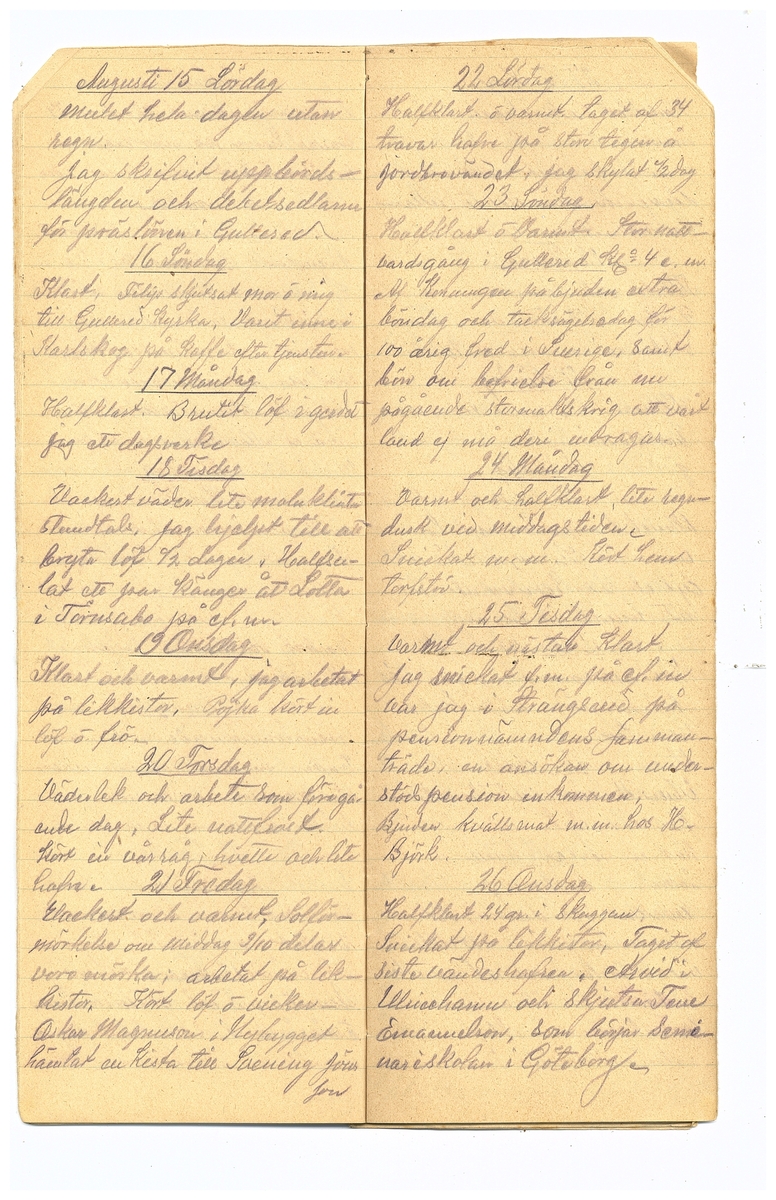 Augusti 15 Lördag
mulet hela dagen utan
regn.
Jag skrifvit uppbörds-
längden och debetsedlarna
för prästlönen i Gullered.
16 Söndag
Klart, Filip skjutsat mor ö mig
till Gullered Kyrka, Varit inne i
Karlskog på kaffe efter tjensten.
17 Måndag
Halfklart. Brutit löf i gärdet
jag ett dagsverke
18 Tisdag
Vackert väder lite molnklister
stundtals, jag hjelpt till att
bryta löf 1/2 dagen, Halfsu-
lat ett par kängor åt Lotta
i Törnsabo på ef. m.
19 Onsdag
Klart och varmt, jag arbetat
på likkistor, Pojka kört in
löf ö frö.
20 Torsdag
Väderlek och arbete som föregå-
ende dag, Lite nattfrost.
Kört in vårråg, hvette och lite
hafre.
21 Fredag
Vackert och varmt, Solför-
mörkelse om middag 9/10 delar
voro mörka; arbetat på lik-
kistor, Kört löf ö vicker-
Oskar Magnuson i Nybygget
hämtat en kista till Svening Jöns
son
22 Lördag
Halfklart ö varmt. taget af 34
travar hafre på stora tegen å
jordbrovändet, jag skylat 1/2 dag
23 Söndag
Halfklart ö Varmt. Stor natt-
vardsgång i Gullered kl 4 e. m.
Af Konungen påbjuden extra
böndag och tacksägelsedag för
100 årig fred i Sverige, samt
bön om befrielse från nu
pågående stormaktskrig att vårt
land ej må deri indragas.
24 Måndag
Varmt och halfklart, lite regn-
dusk ved middagstiden.
Snickat m. m. Kört hem
torfströ.
25 Tisdag
Varmt och nästan Klart
Jag snickat f.m. på ef. m
var jag i Strängsered på
pensionnämndens samman-
träde, en ansökan om under-
stödspension inkommen,
Bjuden kvällsmat m.m. hos H-
Björk.
26 Onsdag
Halfklart 24 gr. i Skuggan,
Snickat på likkistor, Taget af
siste vändeshafren, Arvid i
Ulricehamn och skjutsa Ture
Emanuelson, som börjar Semi-
nariskolan i Göteborg.